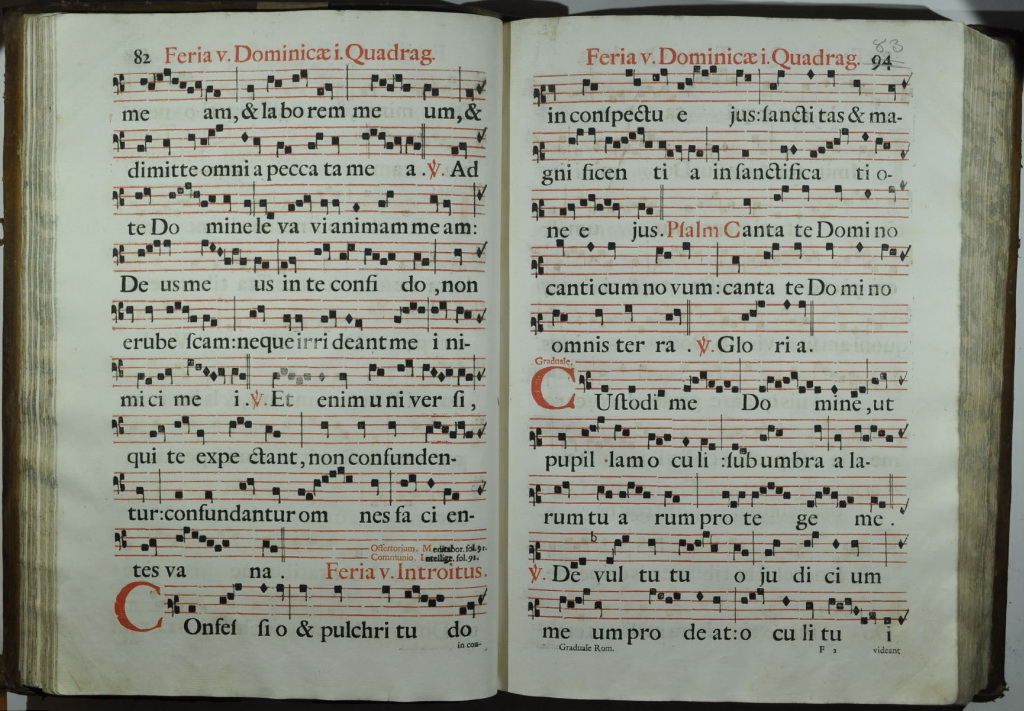 82 Feria v. Dominicæ i. Quadrag.
me am, & la bo rem me um, &
dimitte omni a pecca ta me a . ℣. Ad
te Do mine le va vi animam me am:
De us me us in te confi do , non
erube ſcam: neque irri deant me i ni-
mi ci me i . ℣. Et enim u ni ver ſi ,
qui te expe ctant, non confunden-
tur: confundantur om nes fa ci en-
Offertorium. Meditabor. fol. 91.
Communio. Intellige. fol. 91.
tes va na . Feria v. Introitus.
COnfeſ ſi o & pulchri tu do
in con-
83
Feria v. Dominicæ i. Quadrag. 94
in conſpectu e jus: ſancti tas & ma-
gni ficen ti a in ſanctifica ti o-
ne e jus. Pſalm Canta te Domi no
canti cum no vum: canta te Do mi no
omnis ter ra . ℣. Glo ri a.
Graduale.
CUſtodi me Do mine , ut
pupil lam o cu li : ſub umbra a la-
rum tu a rum pro te ge me .
b
℣. De vul tu tu o ju di ci um
me um pro de at: o cu li tu i
Graduale Rom. F 2 videant